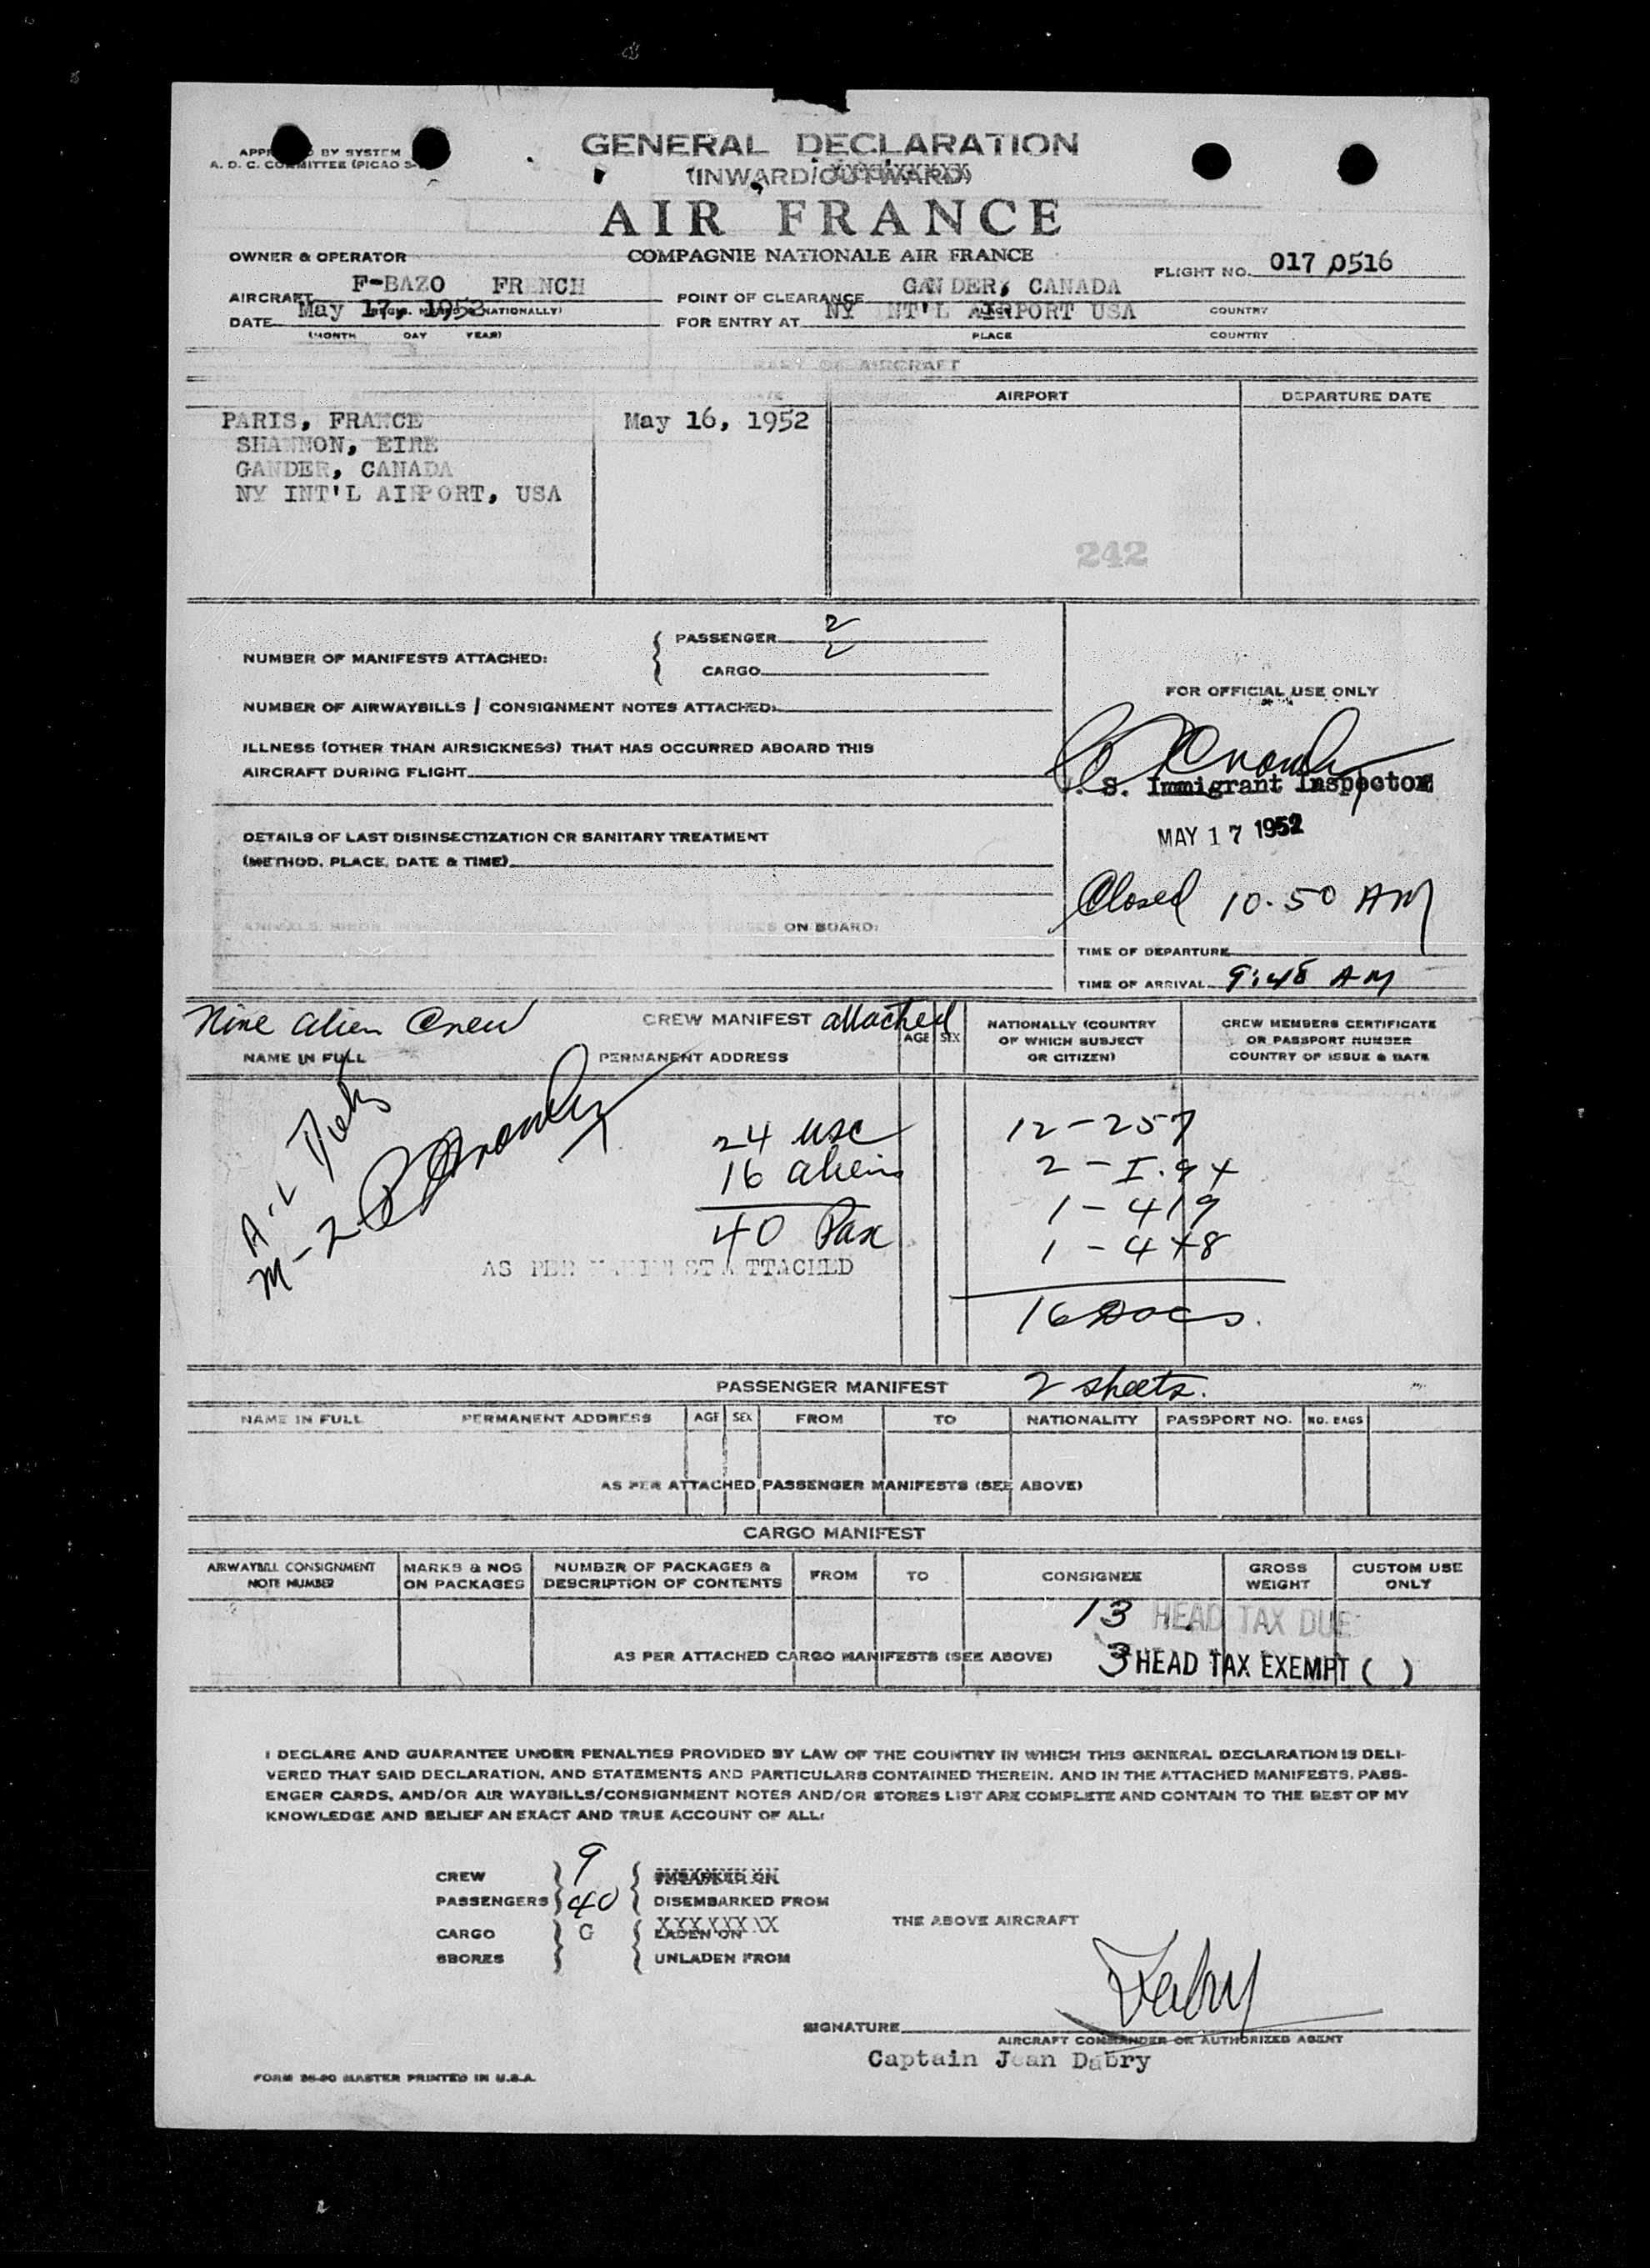 GENERAL DECLARATION
(INWARD/OUTWARD)
BY SYSTEM
A. D. C. COMMITTEE (PICAO
AIR FRANCE
COMPAGNIE NATIONALE AIR FRANCE
OWNER & OPERATOR
FLIGHT NO. 017 0516
AIRCRAFT F-BAZO FRENCH
POINT OF CLEARANCE GANDER, CANADA
COUNTRY
DATE May 17, 1952
(MONTH DAY YEAR)
FOR ENTRY AT NY INT'L AIRPORT USA
PLACE COUNTRY
AIRCRAFT
AIRPORT DEPARTURE DATE
PARIS, FRANCE May 16, 1952
SHANNON, EIRE
GANDER, CANADA
NY INT'L AIRPORT, USA
242
NUMBER OF MANIFESTS ATTACHED:
PASSENGER 2
CARGO
NUMBER OF AIRWAYBILLS / CONSIGNMENT NOTES ATTACHED:
ILLNESS (OTHER THAN AIRSICKNESS) THAT HAS OCCURRED ABOARD THIS
AIRCRAFT DURING FLIGHT
DETAILS OF LAST DISINSECTIZATION OR SANITARY TREATMENT
(METHOD, PLACE, DATE & TIME)
ON BOARD:
FOR OFFICIAL USE ONLY
. S. Immigrant Inspector
MAY 17 1952
Closed 10.50 AM
TIME OF DEPARTURE
TIME OF ARRIVAL 9:48 AM
Nine alien Crew CREW MANIFEST attached
NAME IN FULL
PERMANENT ADDRESS
AGE
SEX
NATIONALLY (COUNTRY
OF WHICH SUBJECT
OR CITIZEN)
CREW MEMBERS CERTIFICATE
OR PASSPORT NUMBER
COUNTRY OF ISSUE & DATE
24 usc
16 aliens
40 Pax
AS PER MANIFEST ATTACHED
12-257
2-I.94
1-419
1-448
16 Docs.
PASSENGER MANIFEST 2 sheets.
NAME IN FULL PERMANENT ADDRESS AGE SEX FROM TO NATIONALITY PASSPORT NO. NO. BAGS
AS PER ATTACHED PASSENGER MANIFESTS (SEE ABOVE)
CARGO MANIFEST
AIRWAYBILL CONSIGNMENT
NOTE NUMBER
MARKS & NOS
ON PACKAGES
NUMBER OF PACKAGES &
DESCRIPTION OF CONTENTS
FROM
TO
CONSIGNEE
GROSS
WEIGHT
CUSTOM USE
ONLY
13 HEAD TAX DUE
AS PER ATTACHED CARGO MANIFESTS (SEE ABOVE)
3 HEAD TAX EXEMPT ( )
I DECLARE AND GUARANTEE UNDER PENALTIES PROVIDED BY LAW OF THE COUNTRY IN WHICH THIS GENERAL DECLARATION IS DELI-
VERED THAT SAID DECLARATION, AND STATEMENTS AND PARTICULARS CONTAINED THEREIN, AND IN THE ATTACHED MANIFESTS, PASS-
ENGER CARDS, AND/OR AIR WAYBILLS/CONSIGNMENT NOTES AND/OR STORES LIST ARE COMPLETE AND CONTAIN TO THE BEST OF MY
KNOWLEDGE AND BELIEF AN EXACT AND TRUE ACCOUNT OF ALL:
CREW 9 EMBARKED ON
PASSENGERS 40 DISEMBARKED FROM
THE ABOVE AIRCRAFT
CARGO G LADEN ON
SBORES UNLADEN FROM
SIGNATURE Dabry
AIRCRAFT COMMANDER OR AUTHORIZED AGENT
Captain Jean Dabry
FORM 26-90 MASTER PRINTED IN U.S.A.